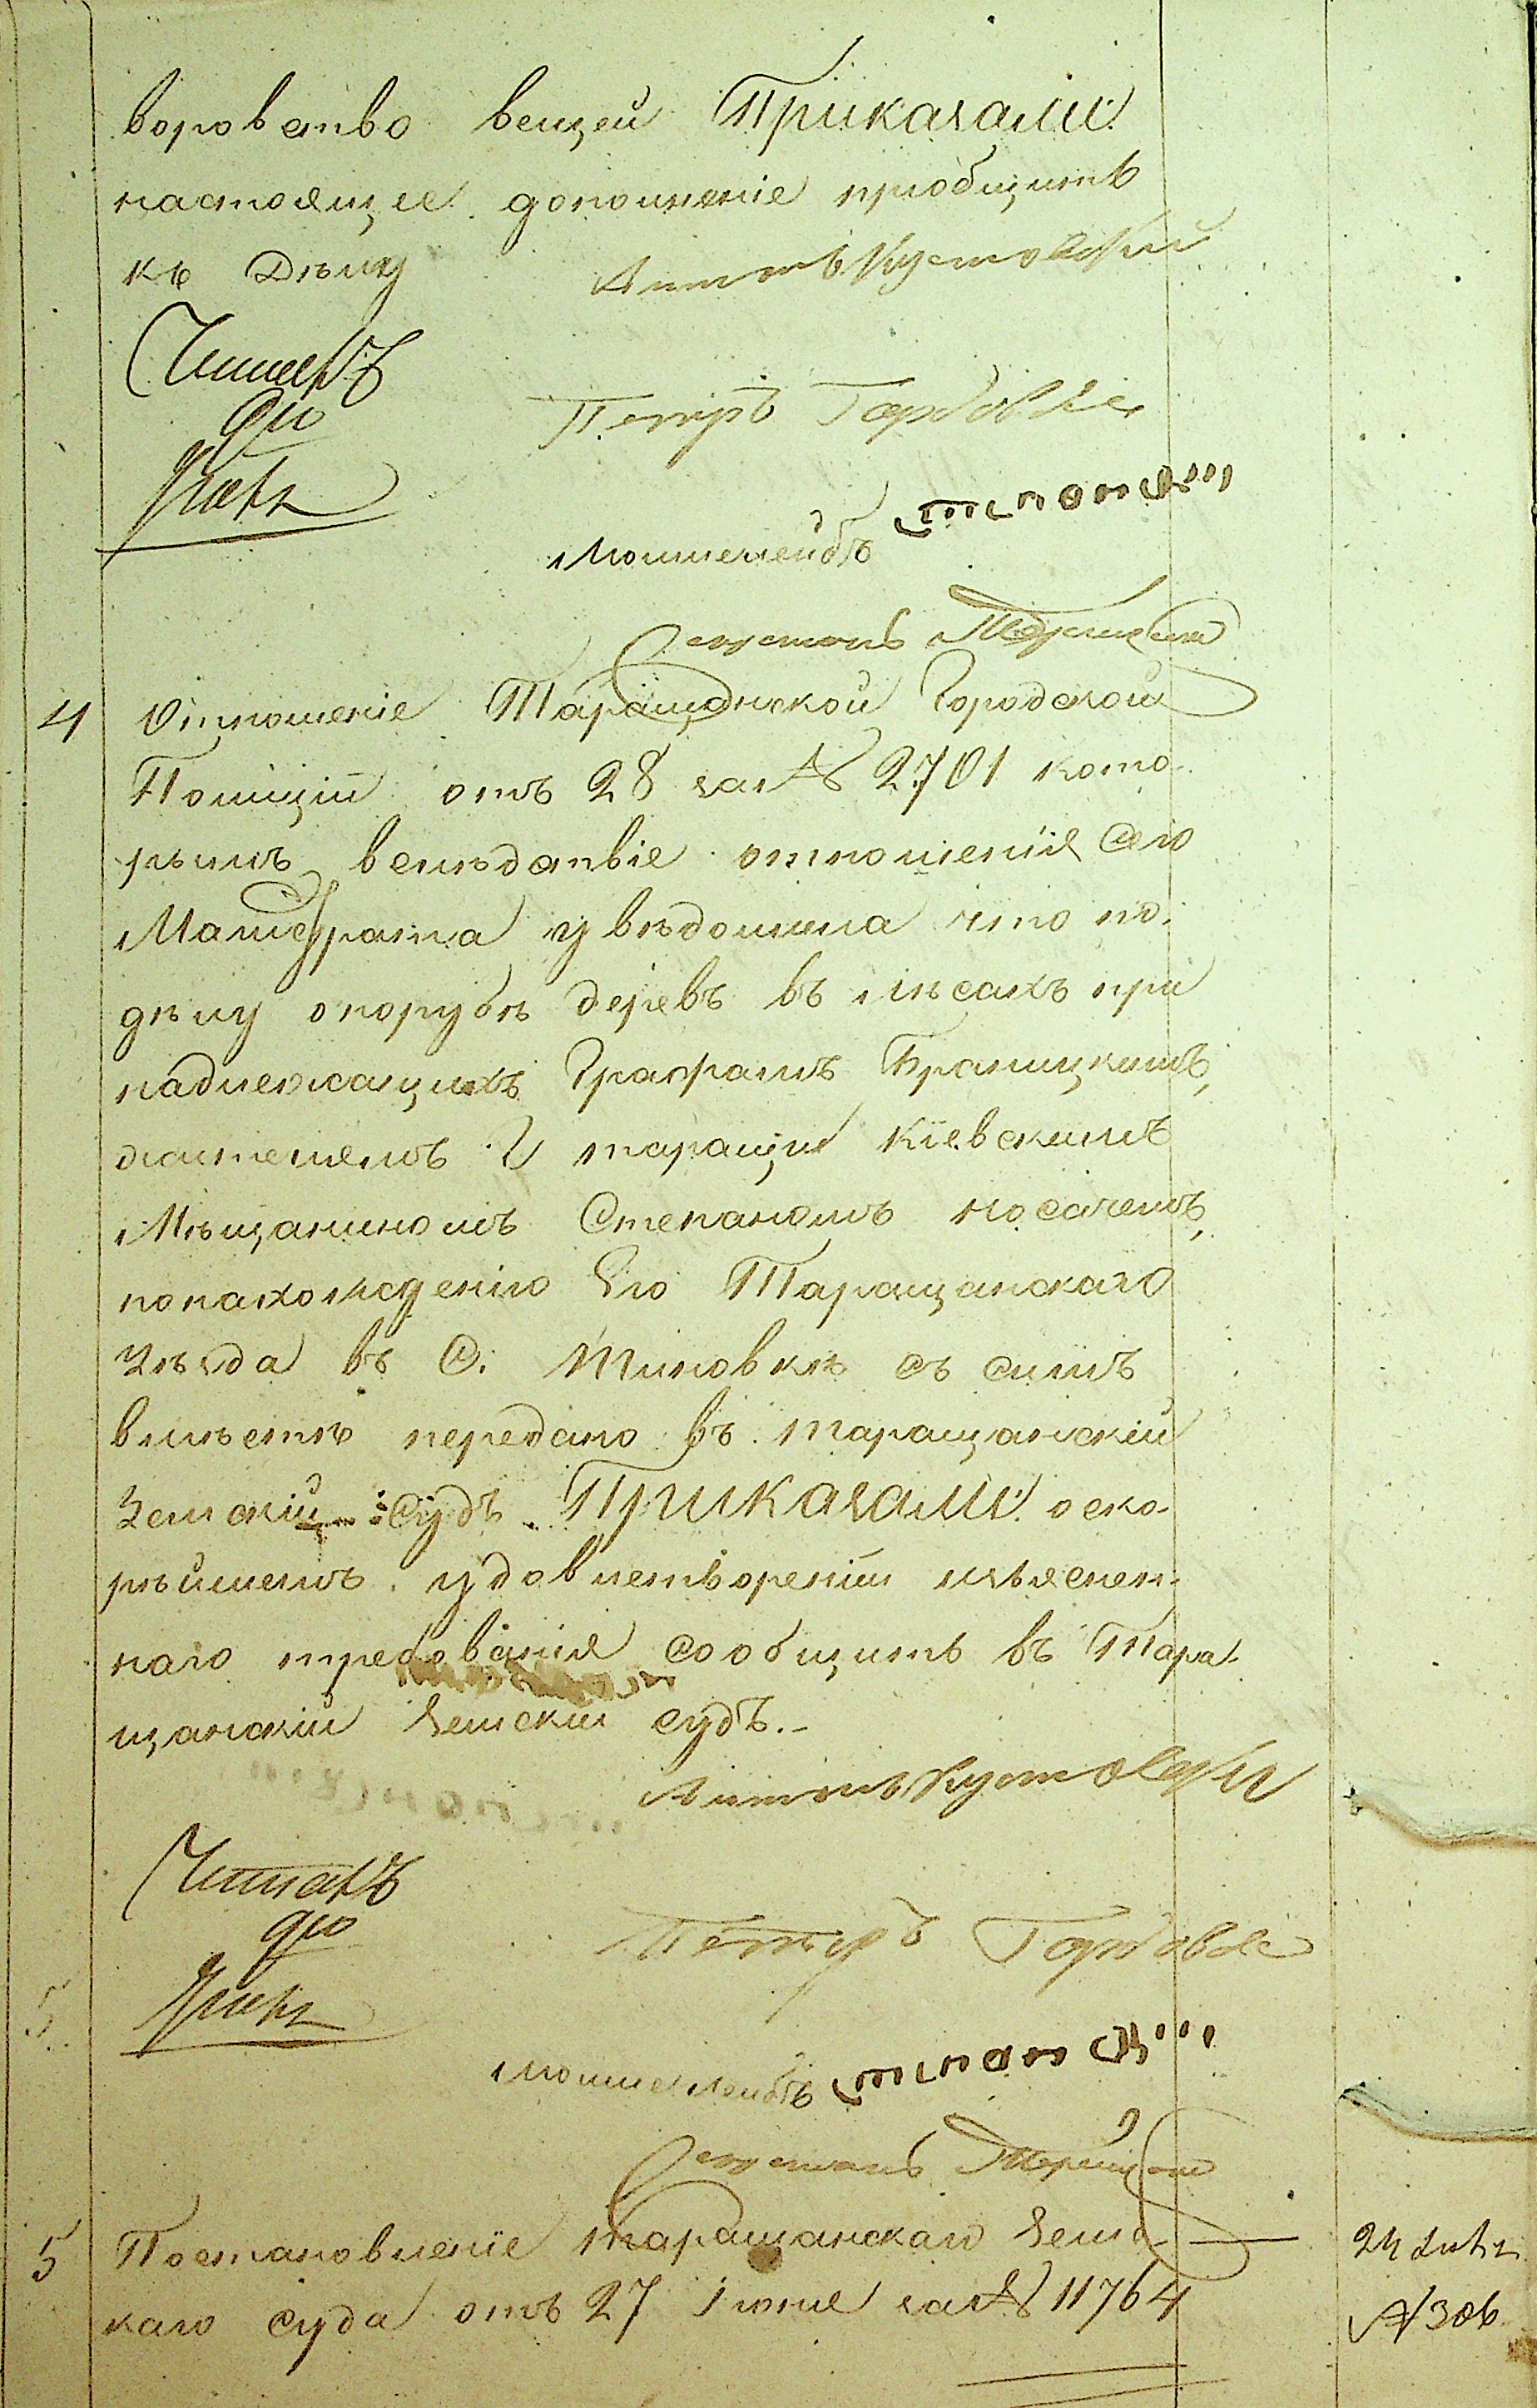 воровство вещей Приказали:
настоящее дополненіе пріобщить
къ Дѣлу
Антонъ Кустовскій
Читалъ
Петръ Горбовск
Мошкелейбъ
4 Отношеніе Таращанской Городской
Полиціи отъ 28 за № 2701 кото-
рымъ вслѣдствіе отношенія Сего
Магистрата увѣдомила что по
дѣлу опорубкѣ деревъ въ лѣсахъ при
надлежащихъ Графамъ Браницкимъ,
жителемъ г. таращи Кіевскимъ
Мѣщаниномъ Степаномъ Носачемъ,
понахожденію Его Таращанскаго
Уѣзда въ С. Тиновкѣ съ симъ
вмѣстѣ передано въ таращанскій
Земскій Судъ. Приказали: оско-
рѣйшемъ удовлетвореніи изъяснен-
наго требованія сообщить въ Тара-
щанскій Земскій судъ.-
Антонъ Кустовскій
Читалъ
Петръ Горбовск
5
Мошкелейбъ
5 Постановленіе таращанскаго Земс-
каго суда отъ 27 Іюня за № 11764
24
№ 306